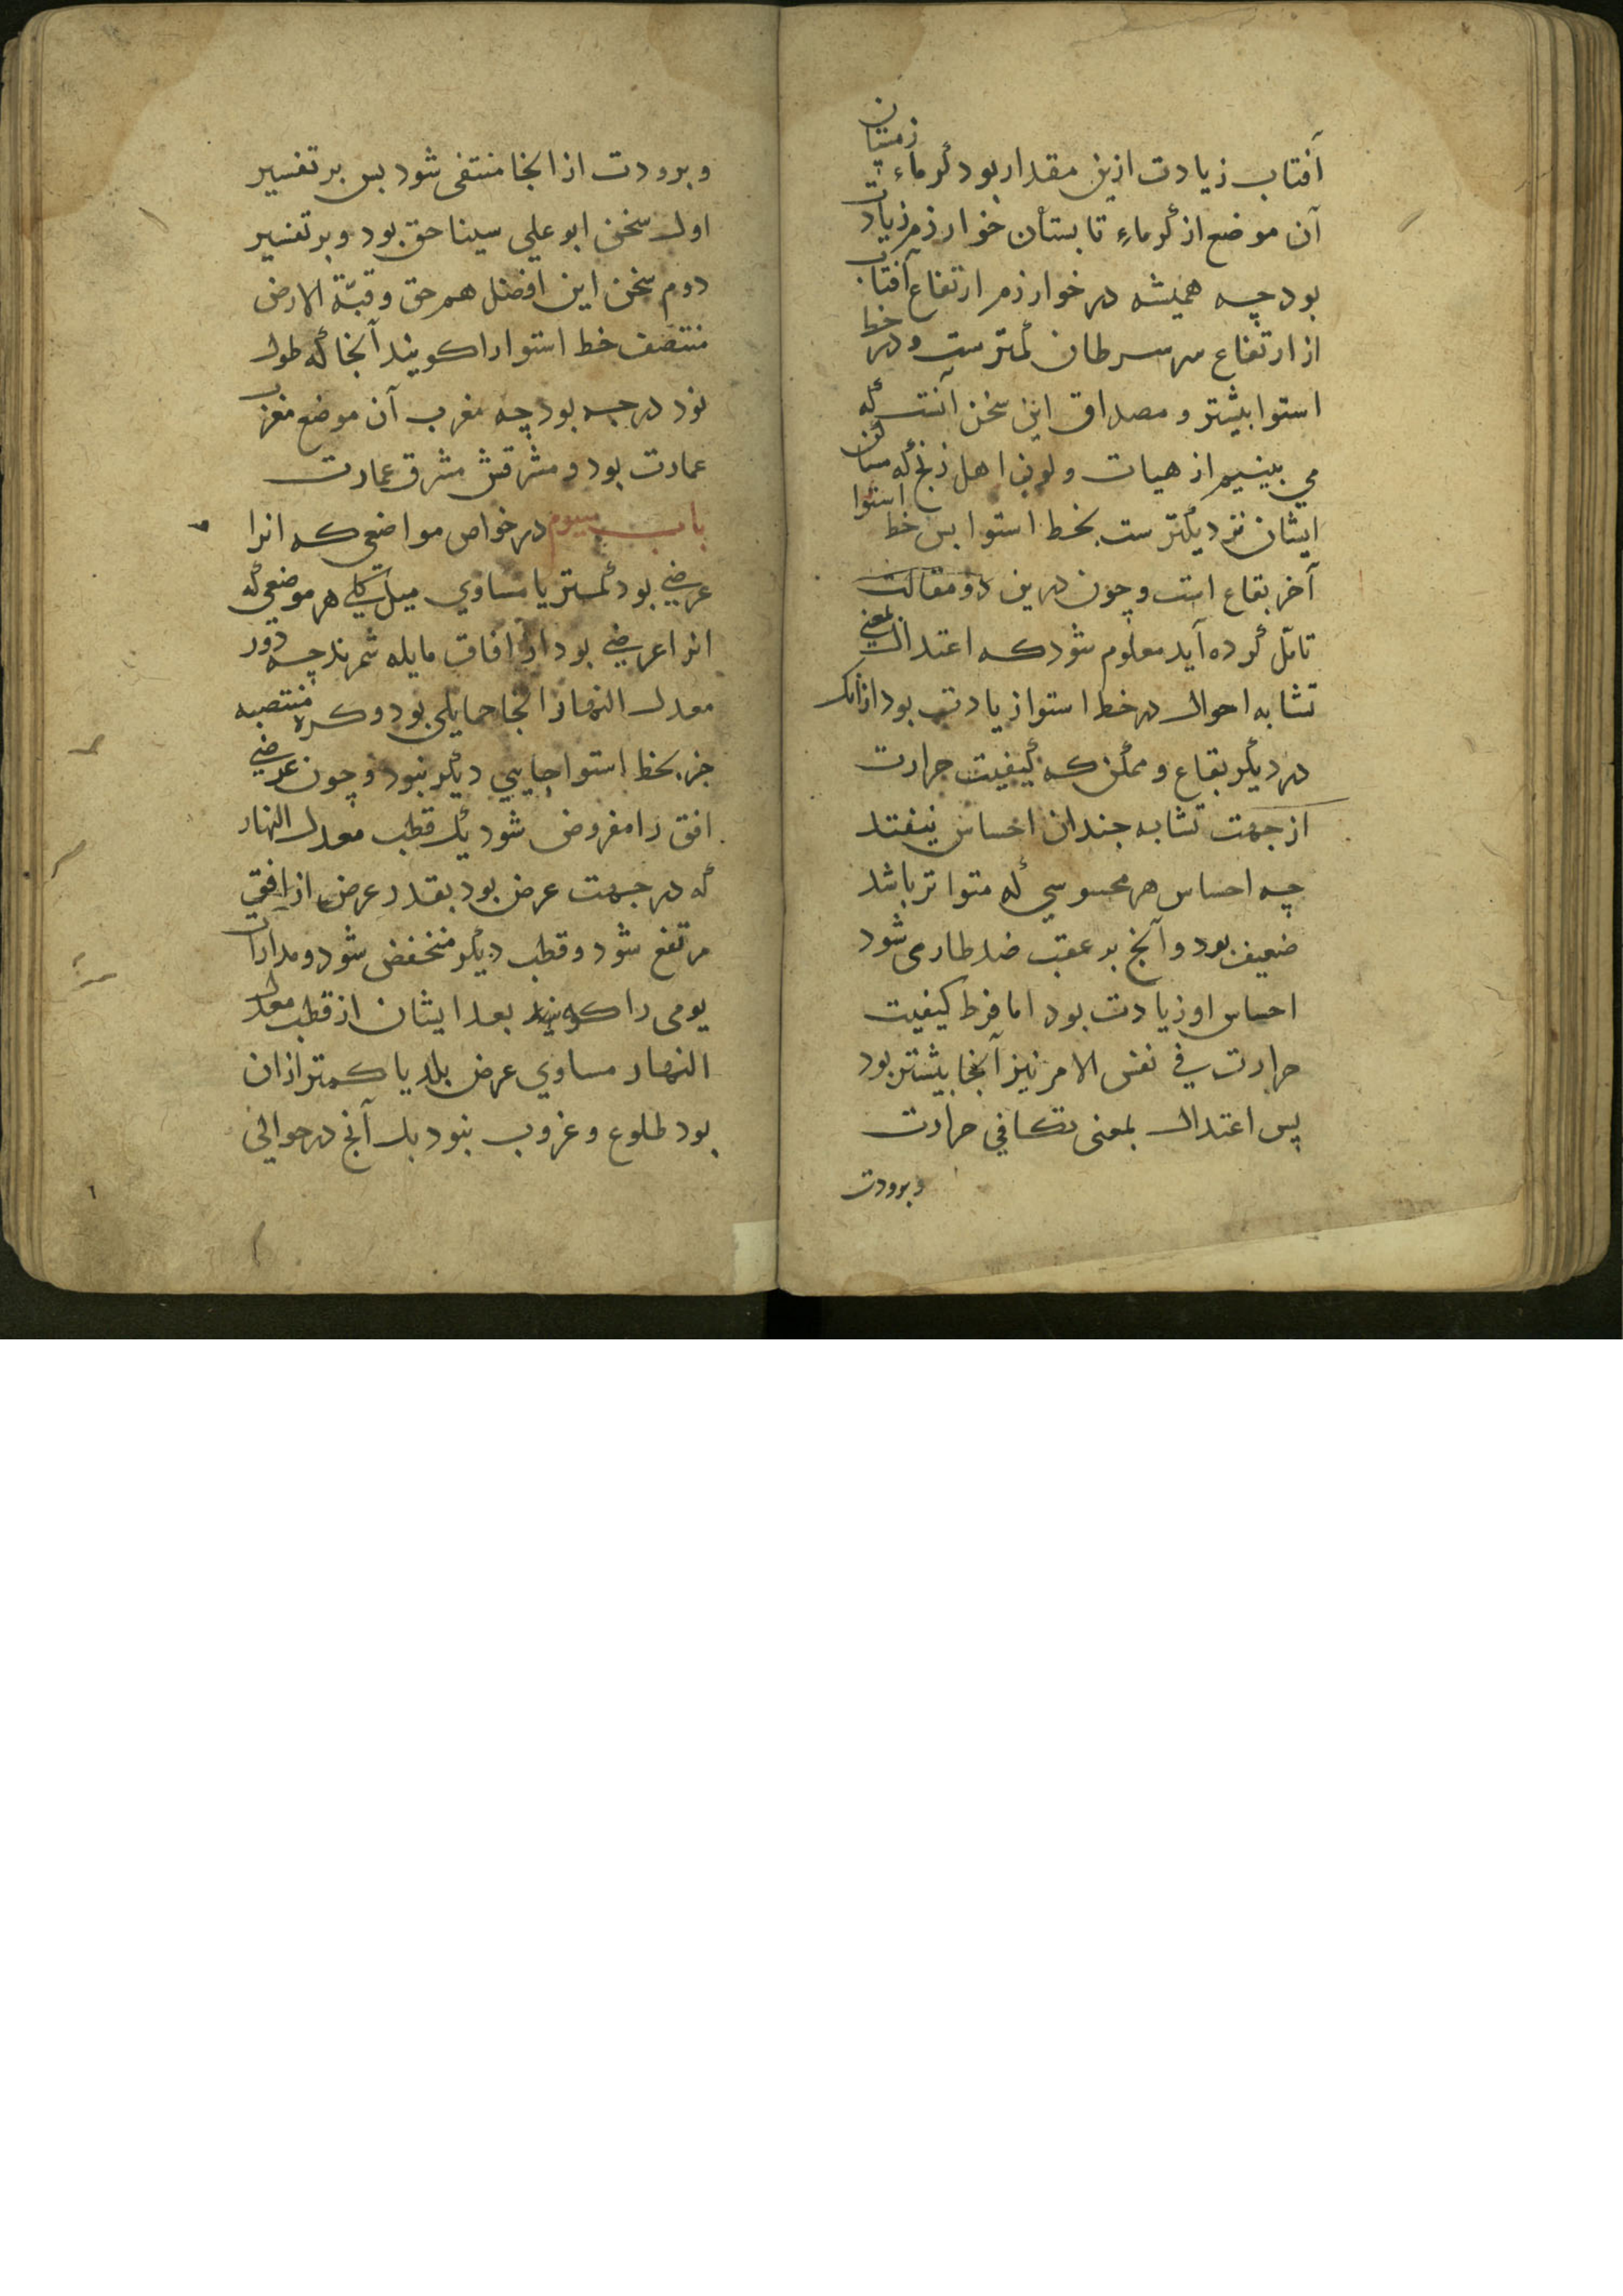 آفتاب زیادت ازین مقدار بود گرماء زمستان
آن موضع از گرماءِ تابستان خوارزم زیادت
بود چه همیشه در خوارزم ارتفاع آفتاب
از ارتفاع سر سرطان کمترست و در خط
استوا بیشتر و مصداق این سخن آنست که
می بینیم از هیات و لون اهل زنج که مساکن
ایشان نزدیکترست بخط استوا بس خط استوا
آخر بقاع است و چون درین دو مقالت
تامّل کرده آید معلوم شود که اعتدال بمعنی
تشابه احوال در خط استوا زیادت بود از آنک
در دیگر بقاع و ممکن که کیفیت حرارت
از جهت تشابه جندان احساس نیفتد
چه احساس هر محسوسی که متواتر باشد
ضعیف بود و آنج بر عقب ضد طاری شود
احساس او زیادت بود اما فرط کیفیت
حرارت فی نفس الامر نیز آنجا بیشتر بود
پس اعتدال بمعنی تکافی حرارت
وبرودت
و برودت از انجا منتفی شود بس بر تفسیر
اول سخن ابو علی سینا حق بود و بر تفسیر
دوم سخن این افضل هم حق و قبّة الارض
منتصف خط استوا را کویند آنجا که طول
نود درجه بود چه مغرب آن موضع مغرب
عمارت بود و مشرقش مشرق عمارت
باب سیوم در خواص مواضعی که انرا
عرضی بود کمتر یا مساوی میل کلی هر موضعی که
انرا عرضی بود از آفاق مایله شمرند چه دور
معدل النهار انجا حمایلی بود و کره منتصبه
جز بخط استوا جایی دیگر نبود و چون عرضی
افق را مفروض شود یک قطب معدل النهار
که در جهت عرض بود بقدر عرض از افق
مرتفع شود و قطب دیگر منخفض شود و مدارات
یومی را که بعد ایشان از قطب معدل
النهار مساوی عرض بلد یا کمتر ازان
بود طلوع و غروب نبود بل آنج در حوالی
٦